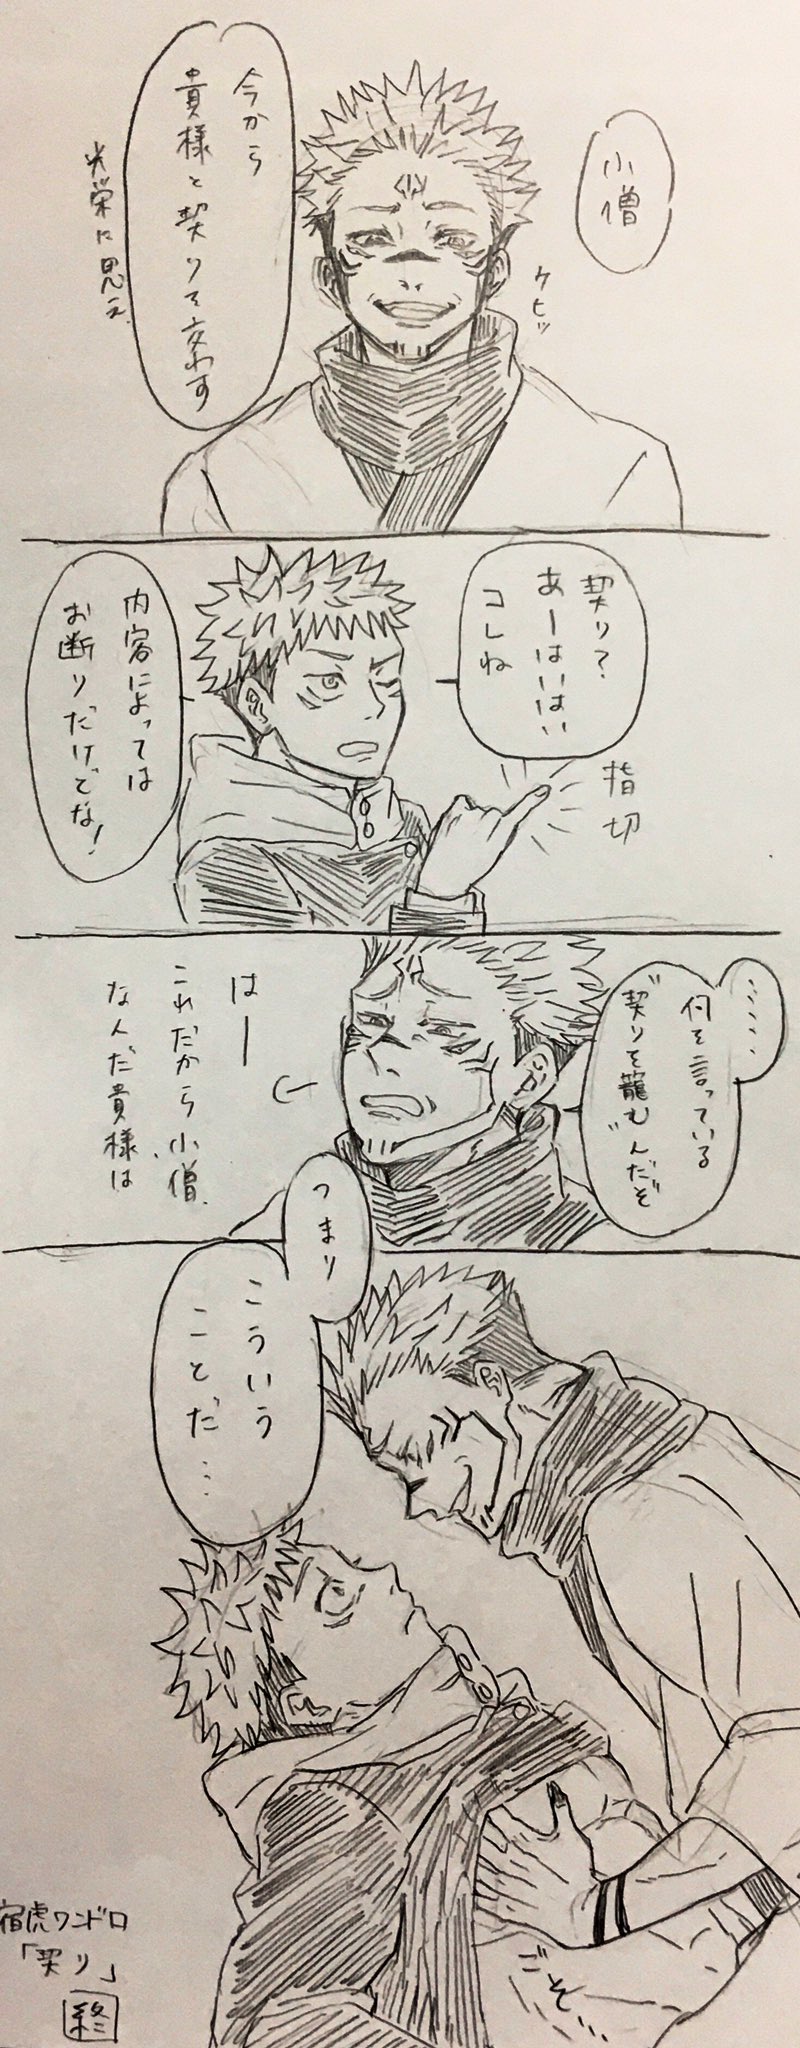 小僧
ケヒッ
今から
貴様と契りを交わす
光栄に思え
契り?
あーはいはい
コレね
指切
内容によっては
お断りだけどな!
……
何を言っている
"契りを籠む"んだぞ
はー
これだから小僧、
なんだ貴様は
つまり
こういう
ことだ…
ごそ…
宿虎ワンドロ
「契り」
終